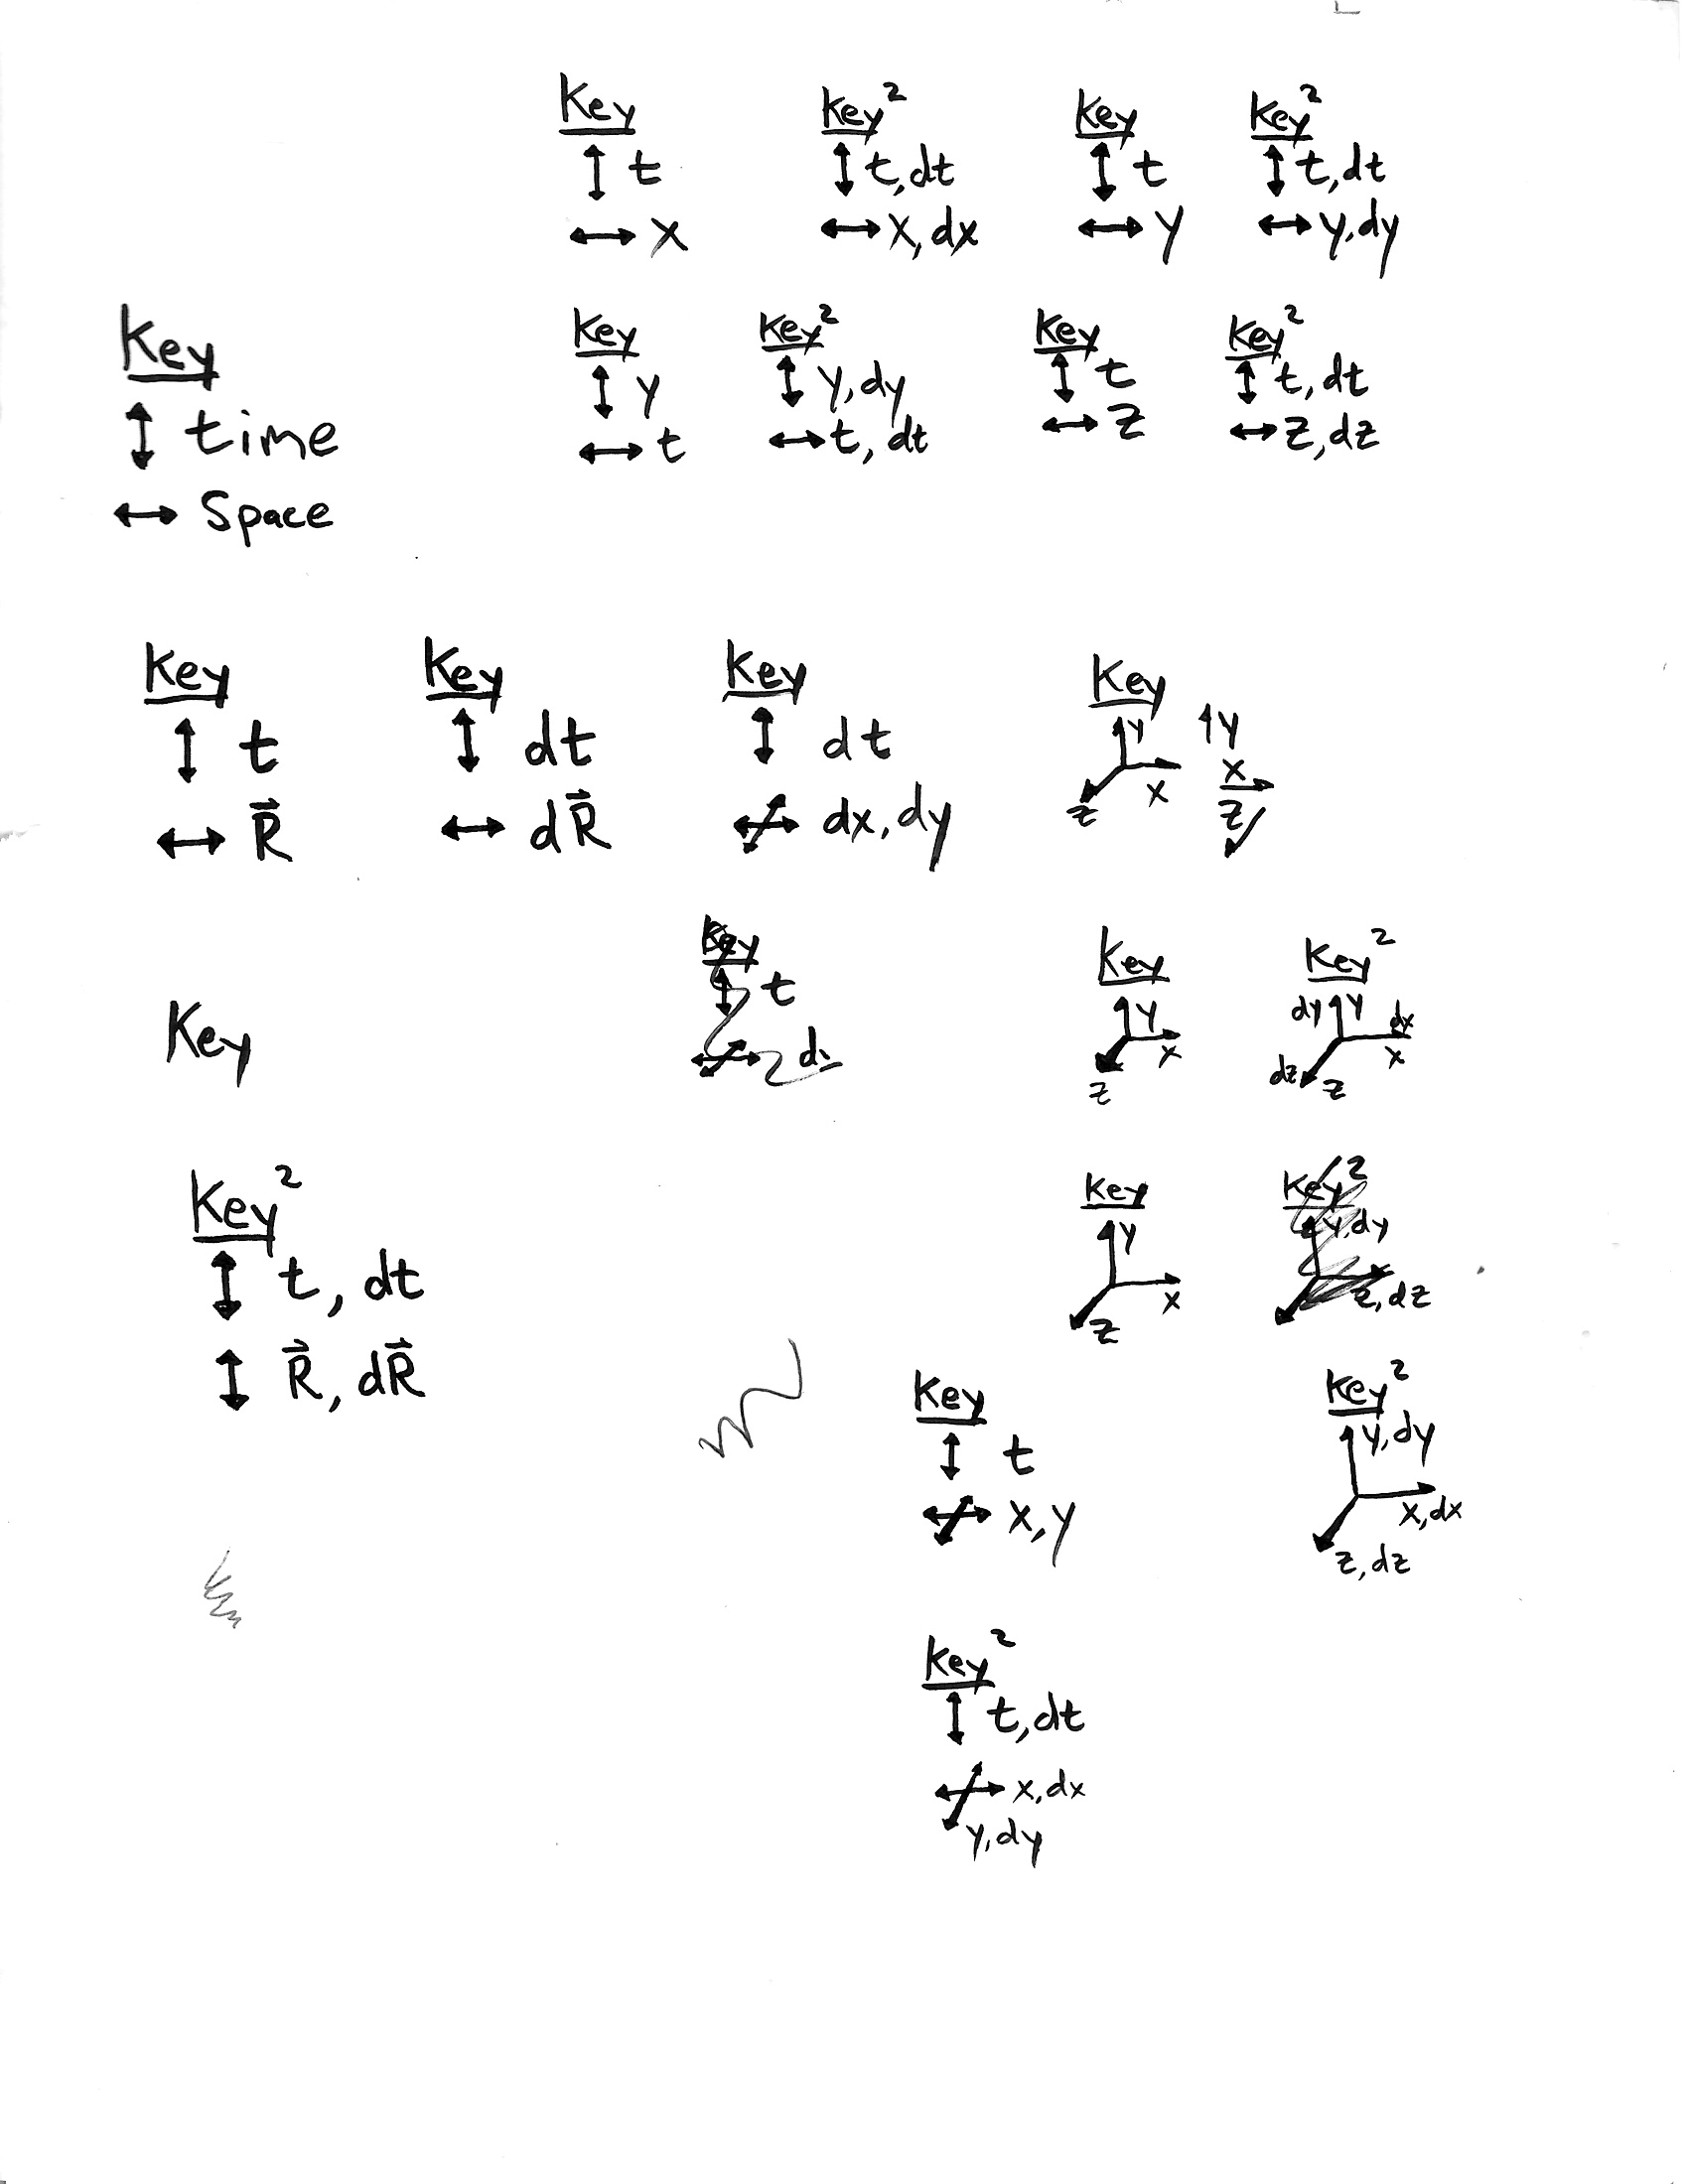 Key
↕ t
↔ x
Key²
↕ t, dt
↔ x, dx
Key
↕ t
↔ y
Key²
↕ t, dt
↔ y, dy
Key
↕ time
↔ Space
Key
↕ y
↔ t
Key²
↕ y, dy
↔ t, dt
Key
↕ t
↔ z
Key²
↕ t, dt
↔ z, dz
Key
↕ t
↔ R⃗
Key
↕ dt
↔ dR⃗
Key
↕ dt
dx, dy
Key
y
x
z
y
x
z
Key
Key
↕ t
Key
y
x
z
Key²
dy y
dx
x
dz
z
Key²
↕ t, dt
↕ R⃗, dR⃗
Key
y
x
z
Key²
y, dy
z, dz
Key
↕ t
x, y
Key²
y, dy
x, dx
z, dz
Key²
↕ t, dt
x, dx
y, dy